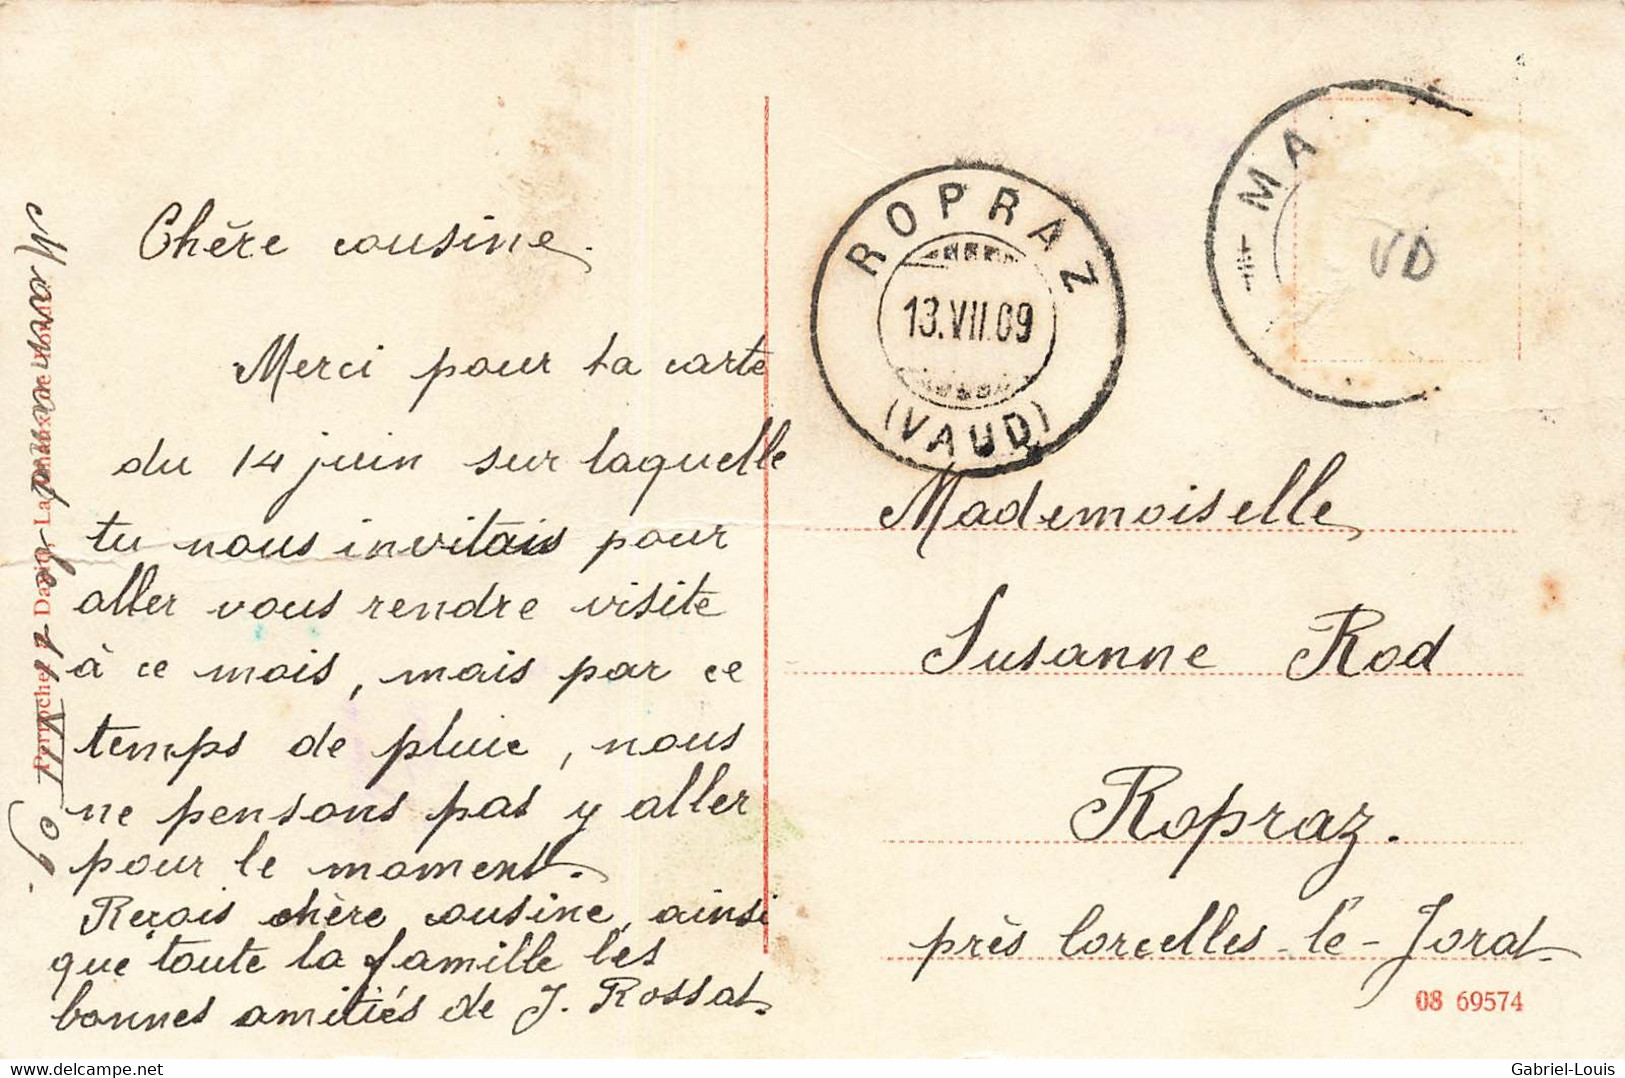 Chère cousine.
Merci pour ta carte
du 14 juin sur laquelle
tu nous invitais pour
aller vous rendre visite
à ce mois, mais par ce
temps de pluie, nous
ne pensons pas y aller
pour le moment.
Reçois chère cousine, ainsi
que toute la famille les
bonnes amitiés de J. Rossat
VII 09.
La Chaux-de-Fonds
ROPRAZ
13.VII.09
(VAUD)
MA
VD
Mademoiselle
Susanne Rod
Ropraz.
près Corcelles-le-Jorat
08 69574
Gabriel-Louis